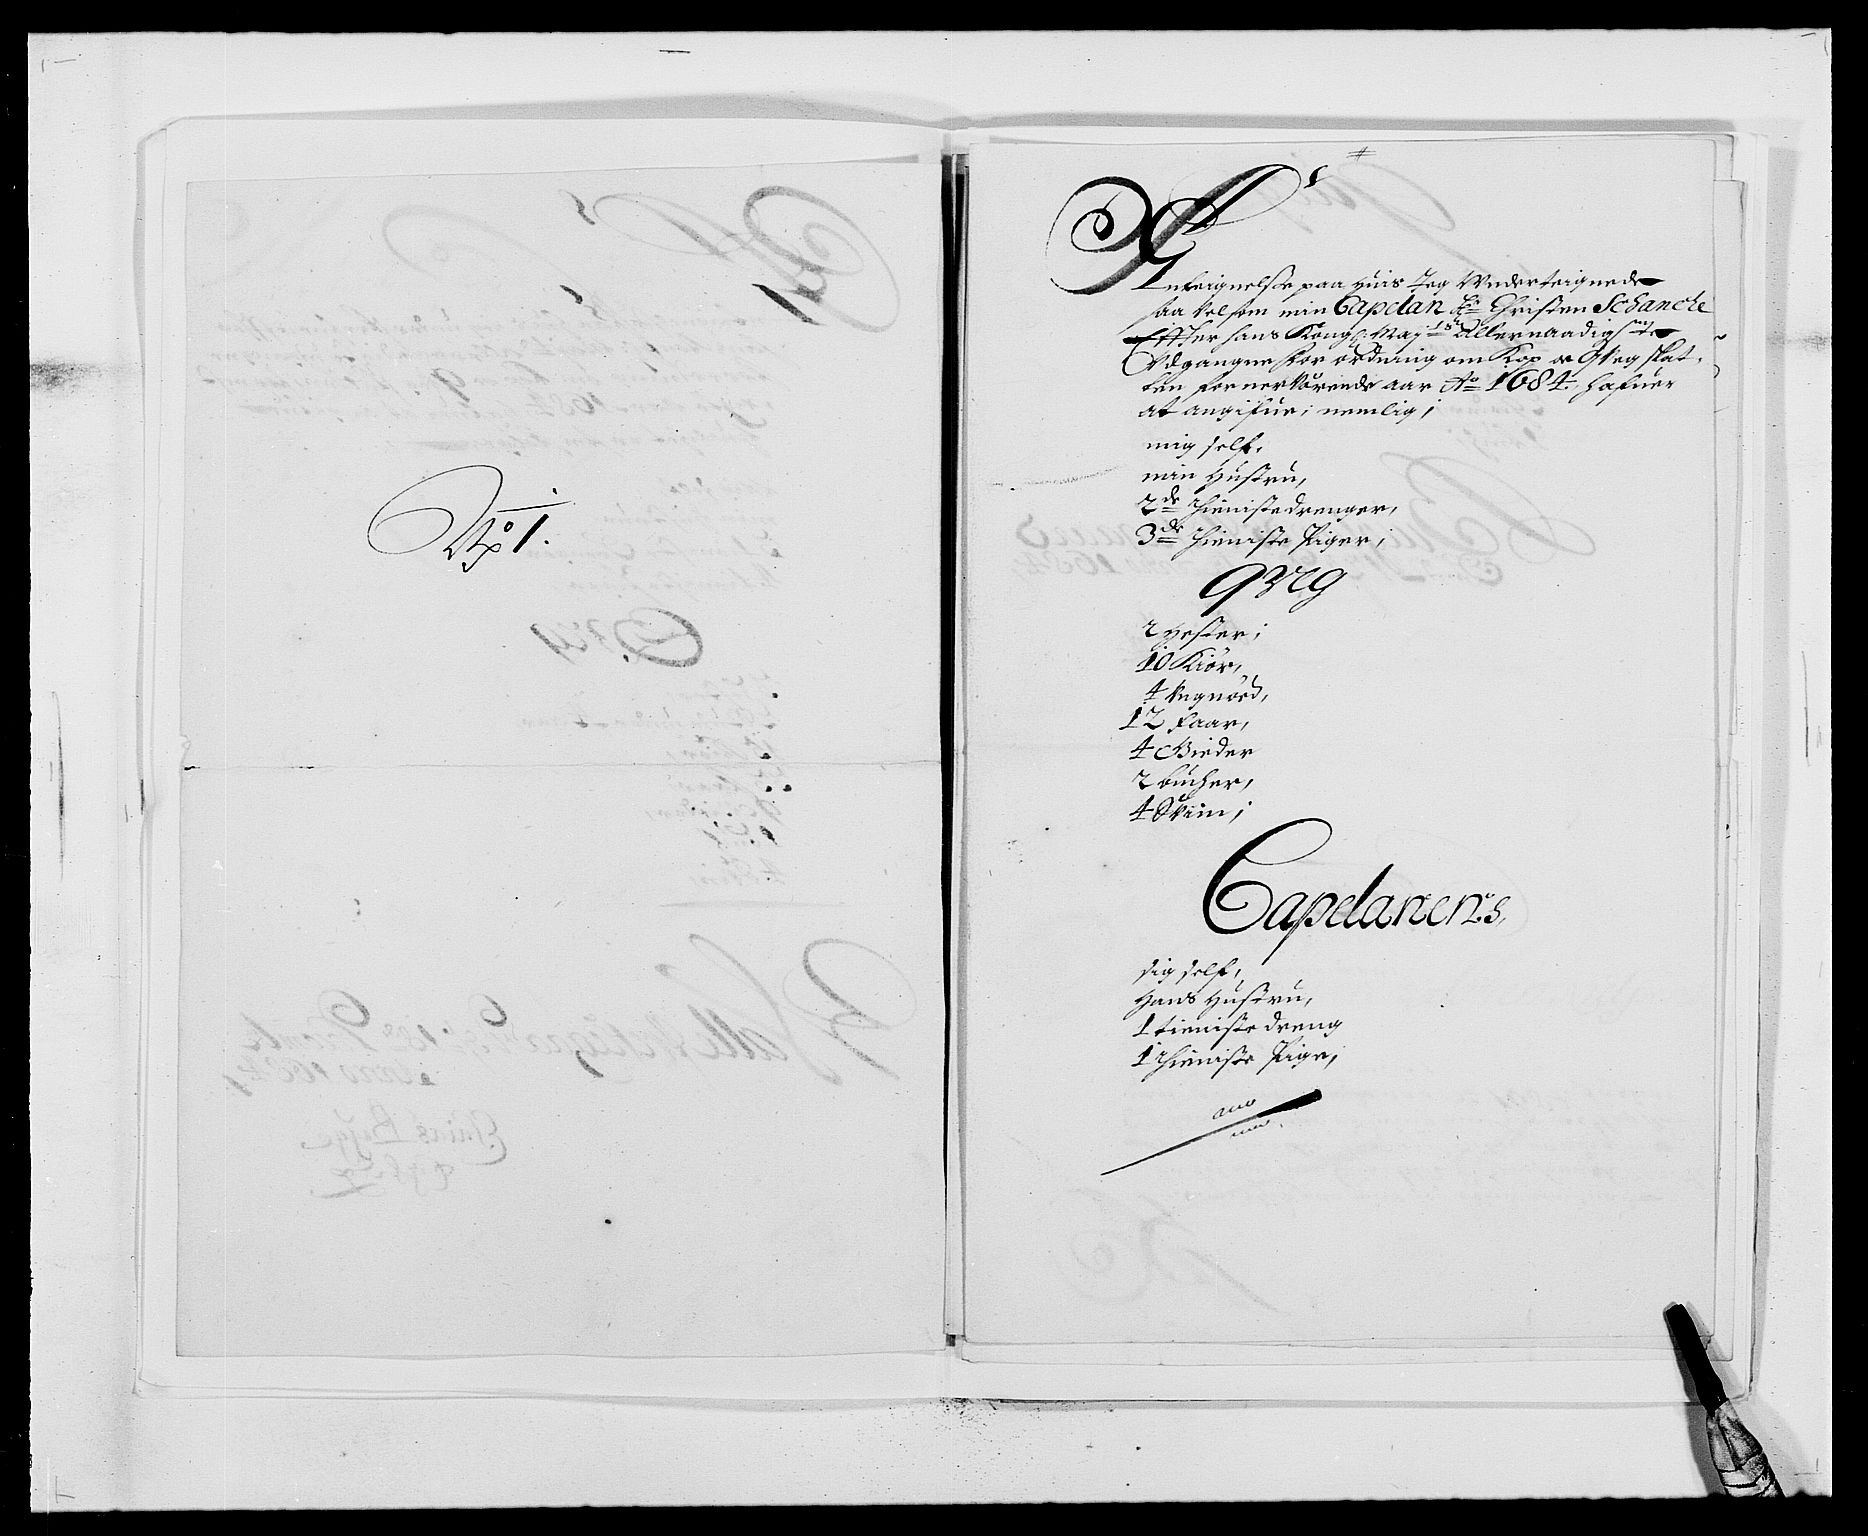 No 1.
Anteignelsse paa huis Jeg Underteignede
saa vel som min Capelan Hr Christen Schancke
Effter hans Kongl: Mayts Allernaadigste
Udgangne Forordning om Kop oc Qvegskat-
ten for nerværende aar Ao 1684. hafuer
at angifue; nemlig;
mig self,
min Hustru,
2de thienistedrenger,
3de thieniste Piger;
Qveg
2 Hester;
10 Kiör,
4 Ungnöed,
12 Faar,
4 Gieder
2 bucher,
4 Sviin;
Capelanens,
sig self,
Hans Hustru,
1 tieniste dreng
1 thieniste Pige;